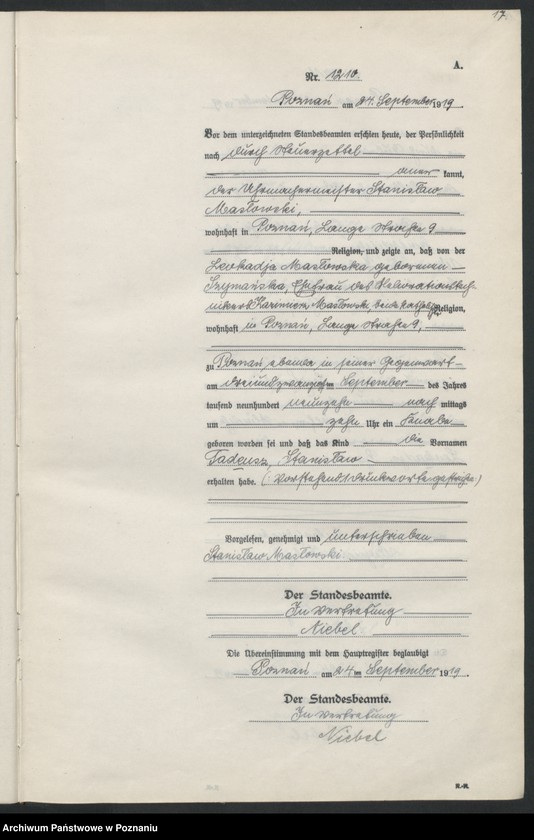 17.
A.
Nr. 1210.
Poznań am 24. September 1919.
Vor dem unterzeichneten Standesbeamten erschien heute, der Persönlichkeit
nach durch Steuerzettel
aner kannt,
der Uhrmachermeister Stanisław
Masłowski,
wohnhaft in Poznań, Lange Straße 9
Religion, und zeigte an, daß von der
Leokadja Masłowska geborenen
Szymańska, Ehefrau des Dekorationstech-
nikers Kazimierz Masłowski, beide kathol. Religion,
wohnhaft in Poznań, Lange Straße 9,
zu Poznań ebenda in seiner Gegenwart
am dreiundzwanzigsten September des Jahres
tausend neunhundert neunzehn nach mittags
um zehn Uhr ein Knabe
geboren worden sei und daß das Kind die Vornamen
Tadeusz, Stanisław
erhalten habe. (Vorstehend 1 Druckwort gestrichen)
Vorgelesen, genehmigt und unterschrieben
Stanisław Masłowski.
Der Standesbeamte.
In Vertretung
Niebel
Die Übereinstimmung mit dem Hauptregister beglaubigt
Poznań am 24 ten September 1919.
Der Standesbeamte.
In Vertretung
Niebel
R.-M.
Archiwum Państwowe w Poznaniu